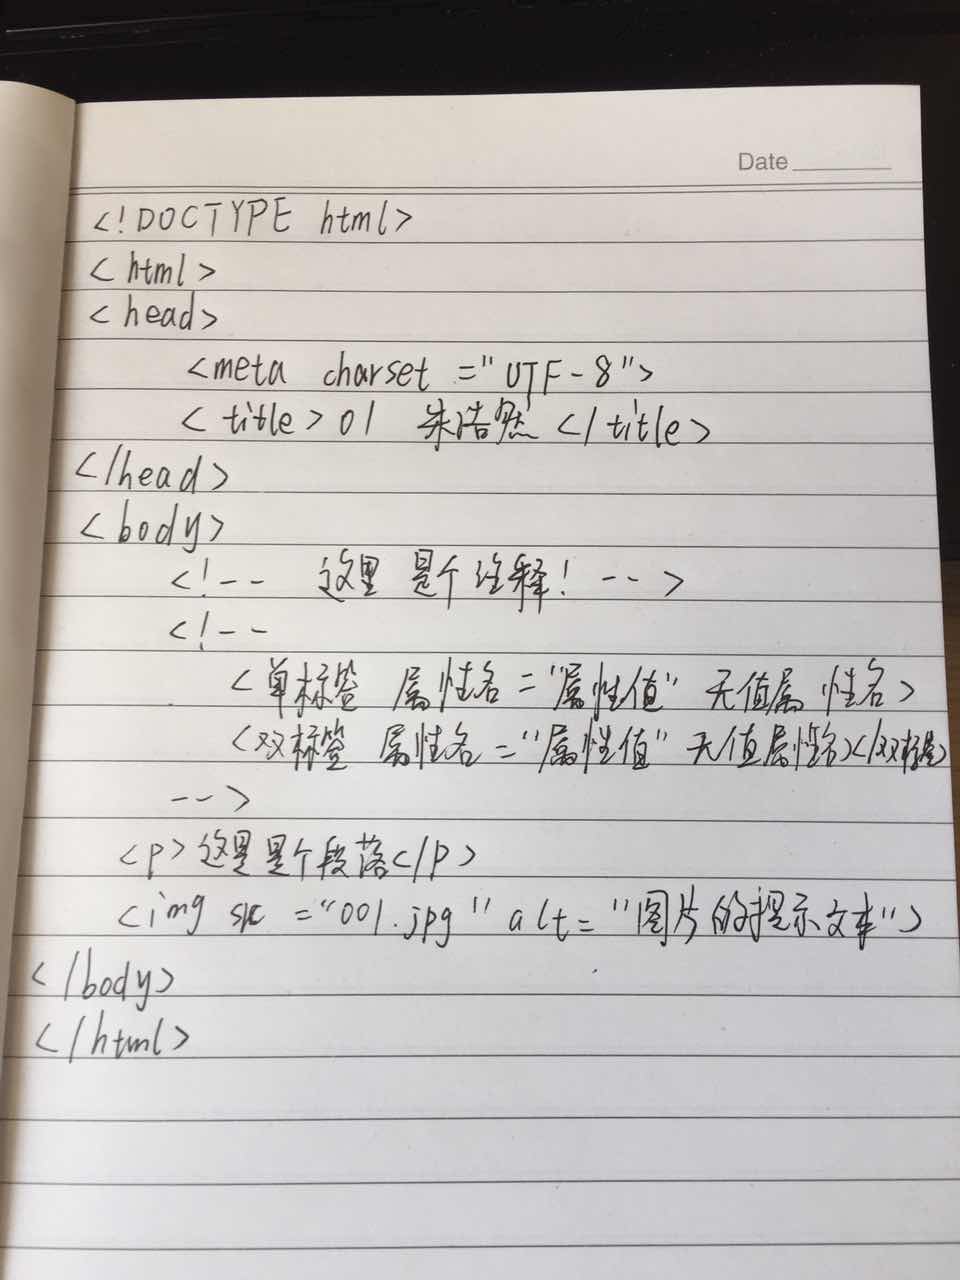 Date
<!DOCTYPE html>
<html>
<head>
<meta charset ="UTF-8">
<title>01 朱浩然</title>
</head>
<body>
<!-- 这里是个注释! -->
<!--
<单标签 属性名="属性值" 无值属性名>
<双标签 属性名="属性值" 无值属性名></双标签>
-->
<p>这是是个段落</p>
<img src ="001.jpg" alt="图片的提示文本">
</body>
</html>